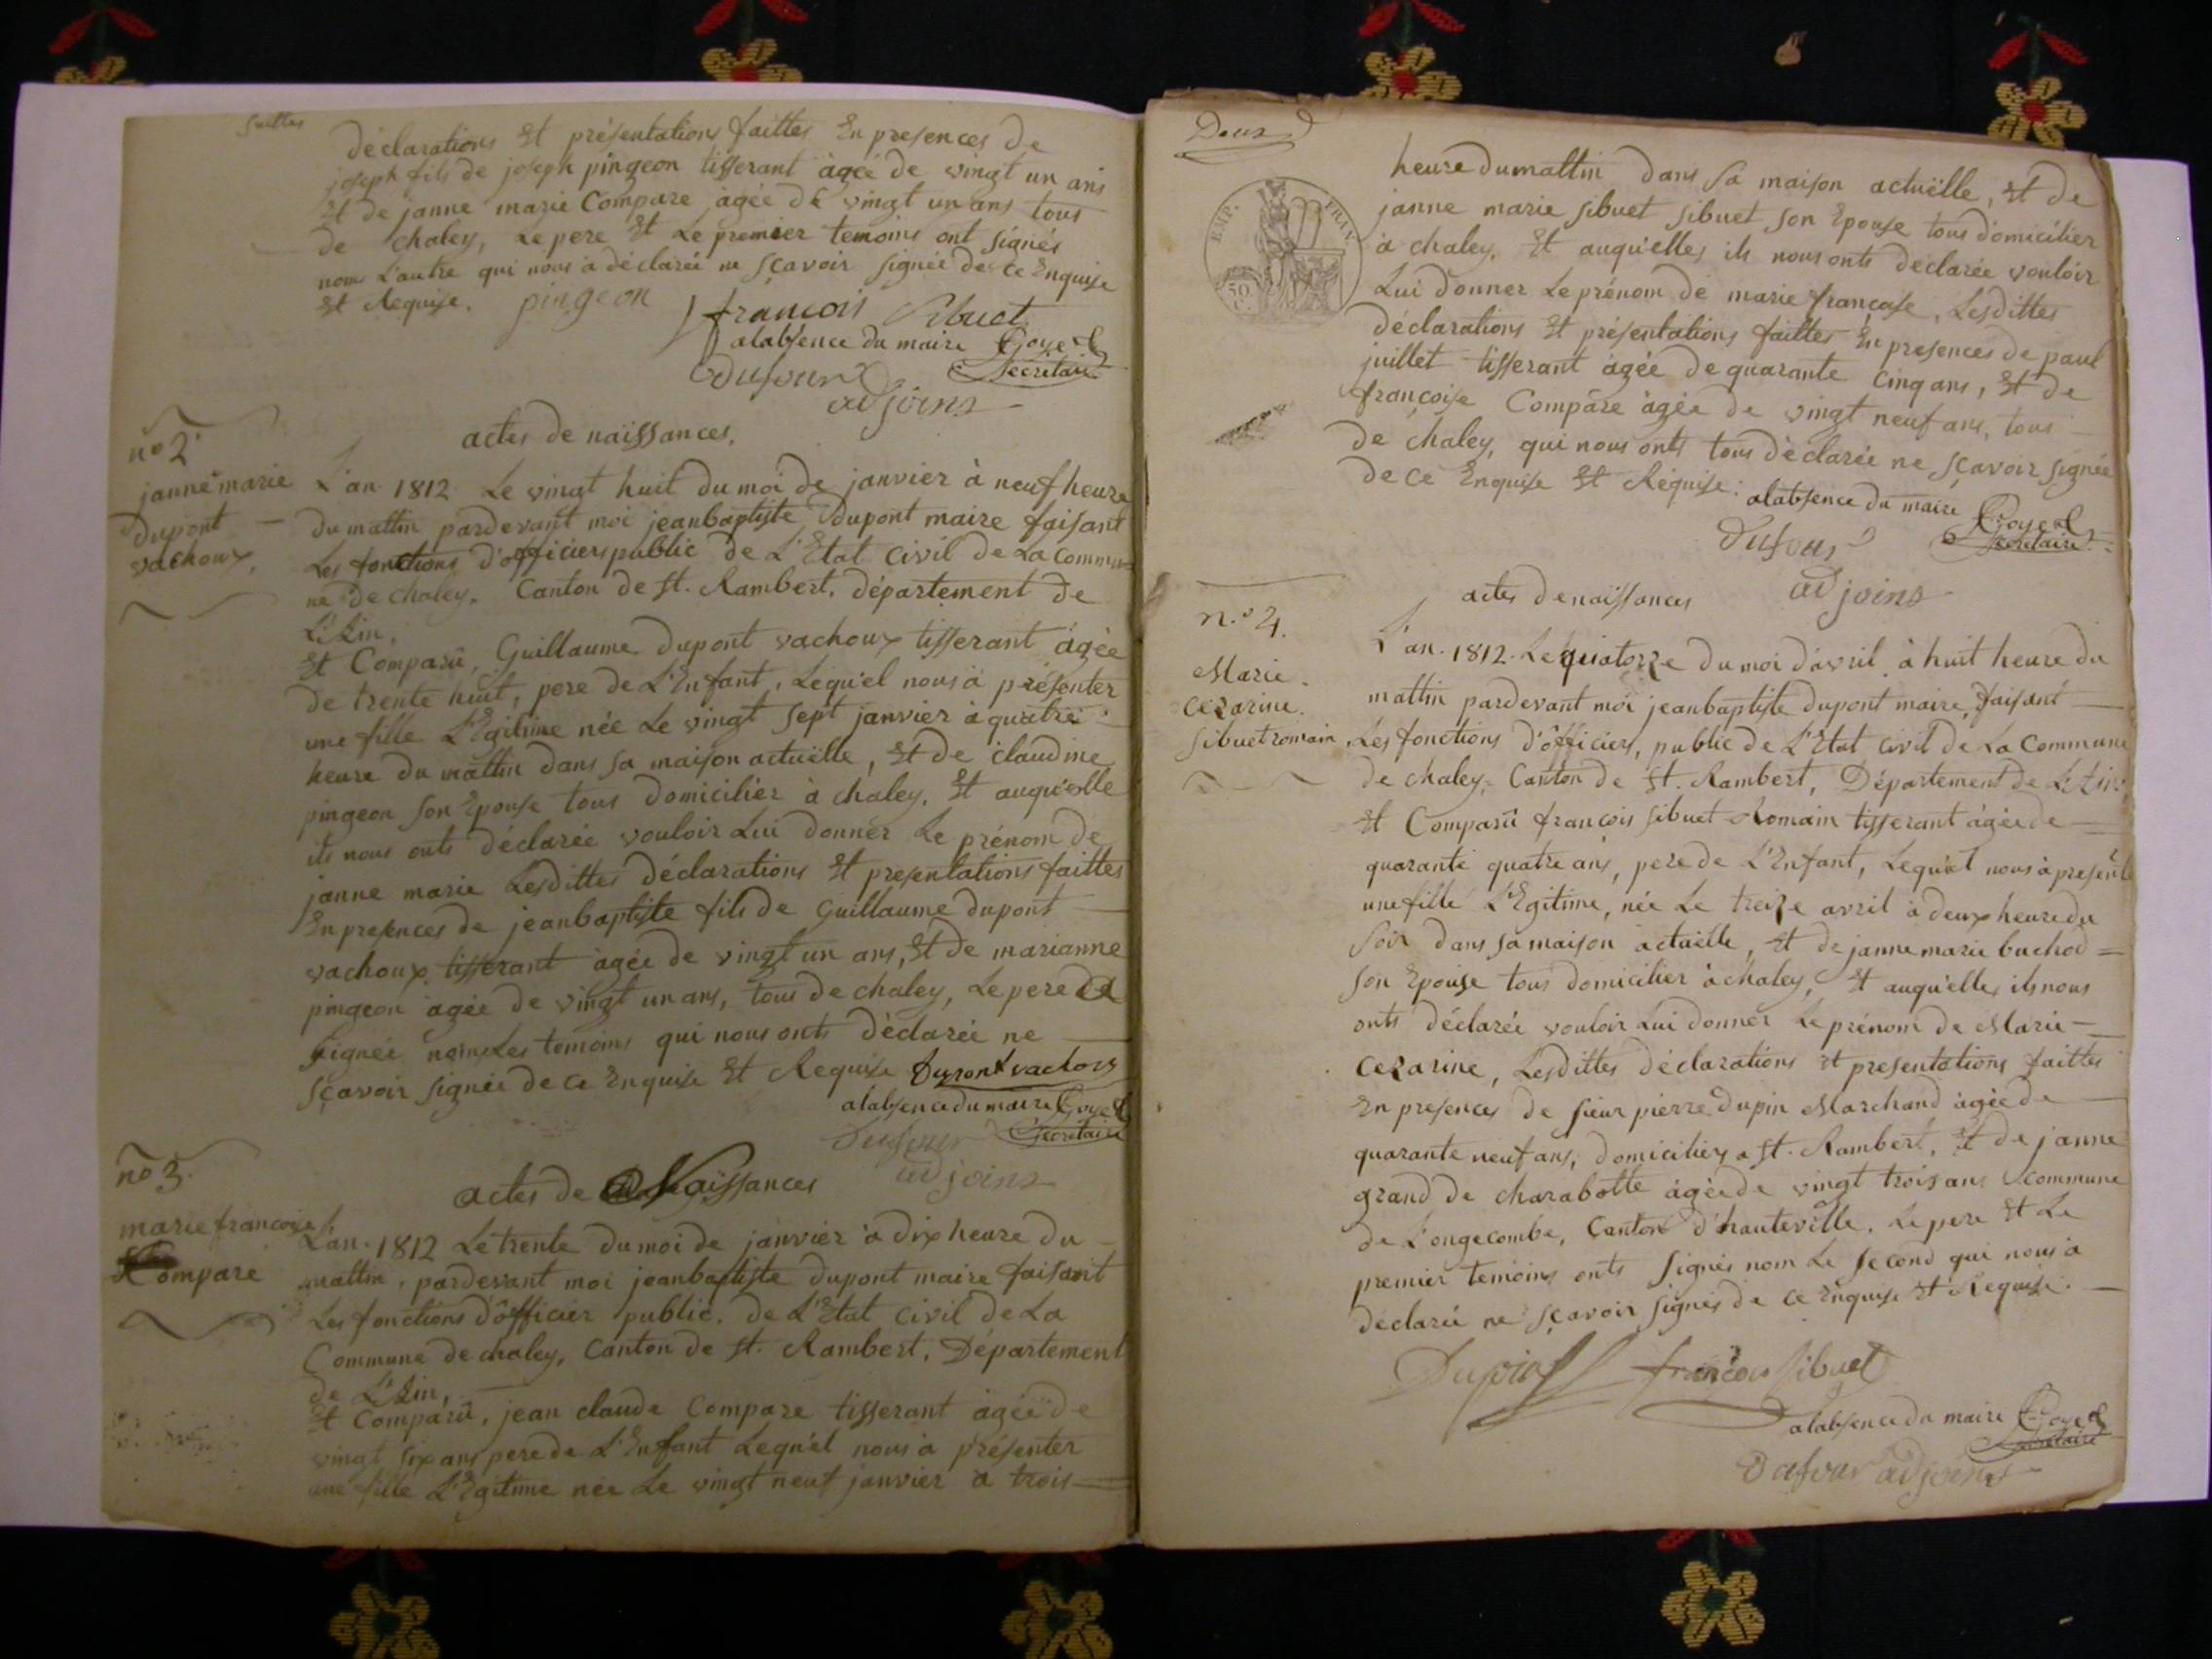 suittes
déclarations Et présentations faittes En presences de
joseph fils de joseph pingeon tisserant àgée de vingt un ans
Et de janne marie Compare àgée de vingt un ans tous
de chaley, Le pere Et Le premier temoins ont signés
nom L'autre qui nous à déclarée ne sçavoir signée de ce Enquise
Et Requise. pingeon
françois Sibuet
alabsence du maire Goyet
Dufour Secretaire
adjoins
actes de naissances.
no 2.
janne marie
Dupont
vachoux.
L'an 1812 Le vingt huit du moi de janvier à neuf heure
du mattin pardevant moi jeanbaptiste dupont maire faisant
Les fonctions d'officiers public de L'Etat Civil de La Commu-
ne de chaley. Canton de St. Rambert, département de
L'Ain.
Et Comparû, Guillaume Dupont vachoux tisserant âgée
de trente huit, pere de L'Enfant, Lequ'el nous à présenter
une fille L'Egitime née Le vingt sept janvier à quatre
heure du mattin dans sa maison actuëlle, Et de claudine
pingeon son Epouse tous domicilier à chaley. Et auqu'elle
ils nous onts déclarée vouloir Lui donner Le prénom de
janne marie Lesdittes déclarations Et presentations faittes
En presences de jeanbaptiste fils de Guillaume dupont
vachoux tisserant àgée de vingt un ans, Et de marianne
pingeon àgée de vingt un ans, tous de chaley, Le pere a
signée nom Les temoins qui nous onts déclarée ne
sçavoir signée de ce Enquise Et Requise Dupont vachoux
alabsence du maire Goyet
Dufour Secretaire
adjoins
no 3.
marie francoise
Compare
actes de Naissances
L'an. 1812 Le trente du moi de janvier à dix heure du
mattin, pardevant moi jeanbaptiste dupont maire faisant
Les fonctions d'officier public. de L'Etat Civil de La
Commune de chaley, Canton de St. Rambert, Département
de L'Ain,
Et Comparû, jean claude Compare tisserant àgée de
vingt six ans pere de L'Enfant Lequ'el nous à présenter
une fille L'Egitime née Le vingt neuf janvier à trois
Deux
EMP. FRAN.
50
C.
heure du mattin dans sa maison actuëlle, Et de
janne marie sibuet sibuet son Epouse tous domicilier
à chaley. Et auqu'elles ils nous onts declarée vouloir
Lui donner Le prénom de marie françoise, Lesdittes
déclarations Et présentations faittes En presences de paul
juillet tisserant àgée de quarante cinq ans, Et de
françoise Compare àgée de vingt neuf ans, tous
de chaley, qui nous onts tous déclarée ne sçavoir signée
de ce Enquise Et Réquise. alabsence du maire Goyet
Dufour Secretaire
adjoins
actes de naissances
n.o 4.
Marie.
Cezarine.
sibuet romain
L'an. 1812. Le quatorze du moi d'avril à huit heure du
mattin pardevant moi jeanbaptiste dupont maire, faisant
Les fonctions d'officiers, public de L'Etat civil de La Commune
de chaley, Canton de St. Rambert, Département de L'Ain,
Et Comparû françois sibuet Romain tisserant âgée de
quarante quatre ans, pere de L'Enfant, Lequ'el nous à presenté
une fille L'Egitime, née Le treize avril à deux heure du
soir dans sa maison actuëlle, Et de janne marie buchod
son Epouse tous domicilier à chaley, Et auqu'elles ils nous
onts déclarée vouloir Lui donner Le prénom de Marie
Cezarine, Lesdittes déclarations Et presentations faittes
En presences de sieur pierre Dupin Marchand àgée de
quarante neuf ans, domiciliers a St. Rambert, Et de janne
grand de charabotte àgée de vingt trois ans commune
de Longecombe, Canton d'hauteville. Le pere Et Le
premier temoins onts signés nom Le second qui nous à
déclarée ne sçavoir signés de ce Enquise Et Requise.
Dupin françois sibuet
alabsence du maire Goyet
Secretaire
Dufour adjoins